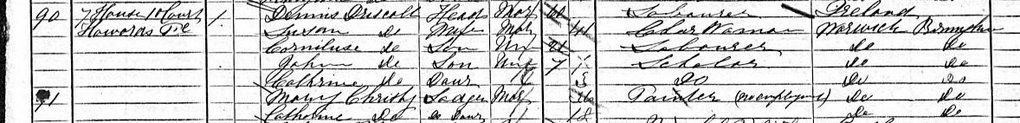 90 7 House 10 Court 1 Dennis Driscoll Head Mar 60 Labourer Ireland
Howards Ple Susan Do Wife Mar 44 Char Woman Warwick Birmingham
Corneluse do Son Un 21 Labourer do do
John do Son Un 7 Scholar do do
Cathrine do Daur 3 Do do do
91 Mary Christy Lodger Mar Painter (unemployed) do do
Catherine Do do Daur 18 do do